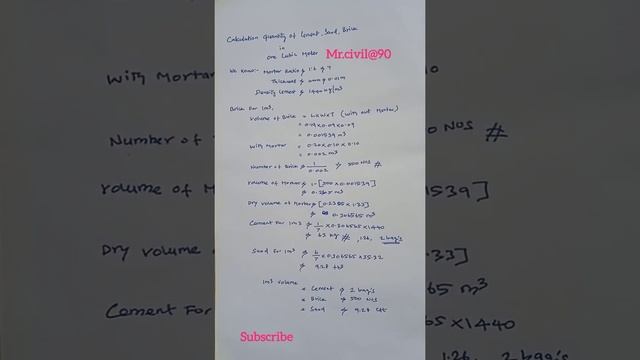 Calculation Quantity of Cement, Sand, Brick
in
One Cubic Meter
Mr.civil@90
We know:- Mortar Ratio ⇒ 1:6 ⇒ 7
Thickness ⇒ 10mm ⇒ 0.01m
Density Cement ⇒ 1440 kg/m³
Brick For 1m³,
Volume of Brick = LxWxT (With out Mortar)
= 0.19x0.09x0.09
= 0.001539 m³
With Mortar = 0.20x0.10x0.10
= 0.002 m³
Number of Brick ⇒ 1/0.002 ⇒ 500 Nos #
Volume of Mortar ⇒ 1-[500x0.001539]
⇒ 0.2305 m³
Dry volume of Mortar ⇒ [0.2305x1.33]
⇒ 0.306565 m³
Cement For 1m³ ⇒ 1/7 x0.306565x1440
⇒ 63 kg #, 1.26, 2 bag's
Sand For 1m³ ⇒ 6/7 x0.306565x35.32
⇒ 9.28 ft³
1m³ volume
= Cement ⇒ 2 bag's
= Brick ⇒ 500 Nos
= Sand ⇒ 9.28 Cft
Subscribe
With Mortar
Number of
Volume of M
Dry Volume
Cement For
0 Nos #
1539]
.33]
65 m³
65x1440
1.26, 2 bag's